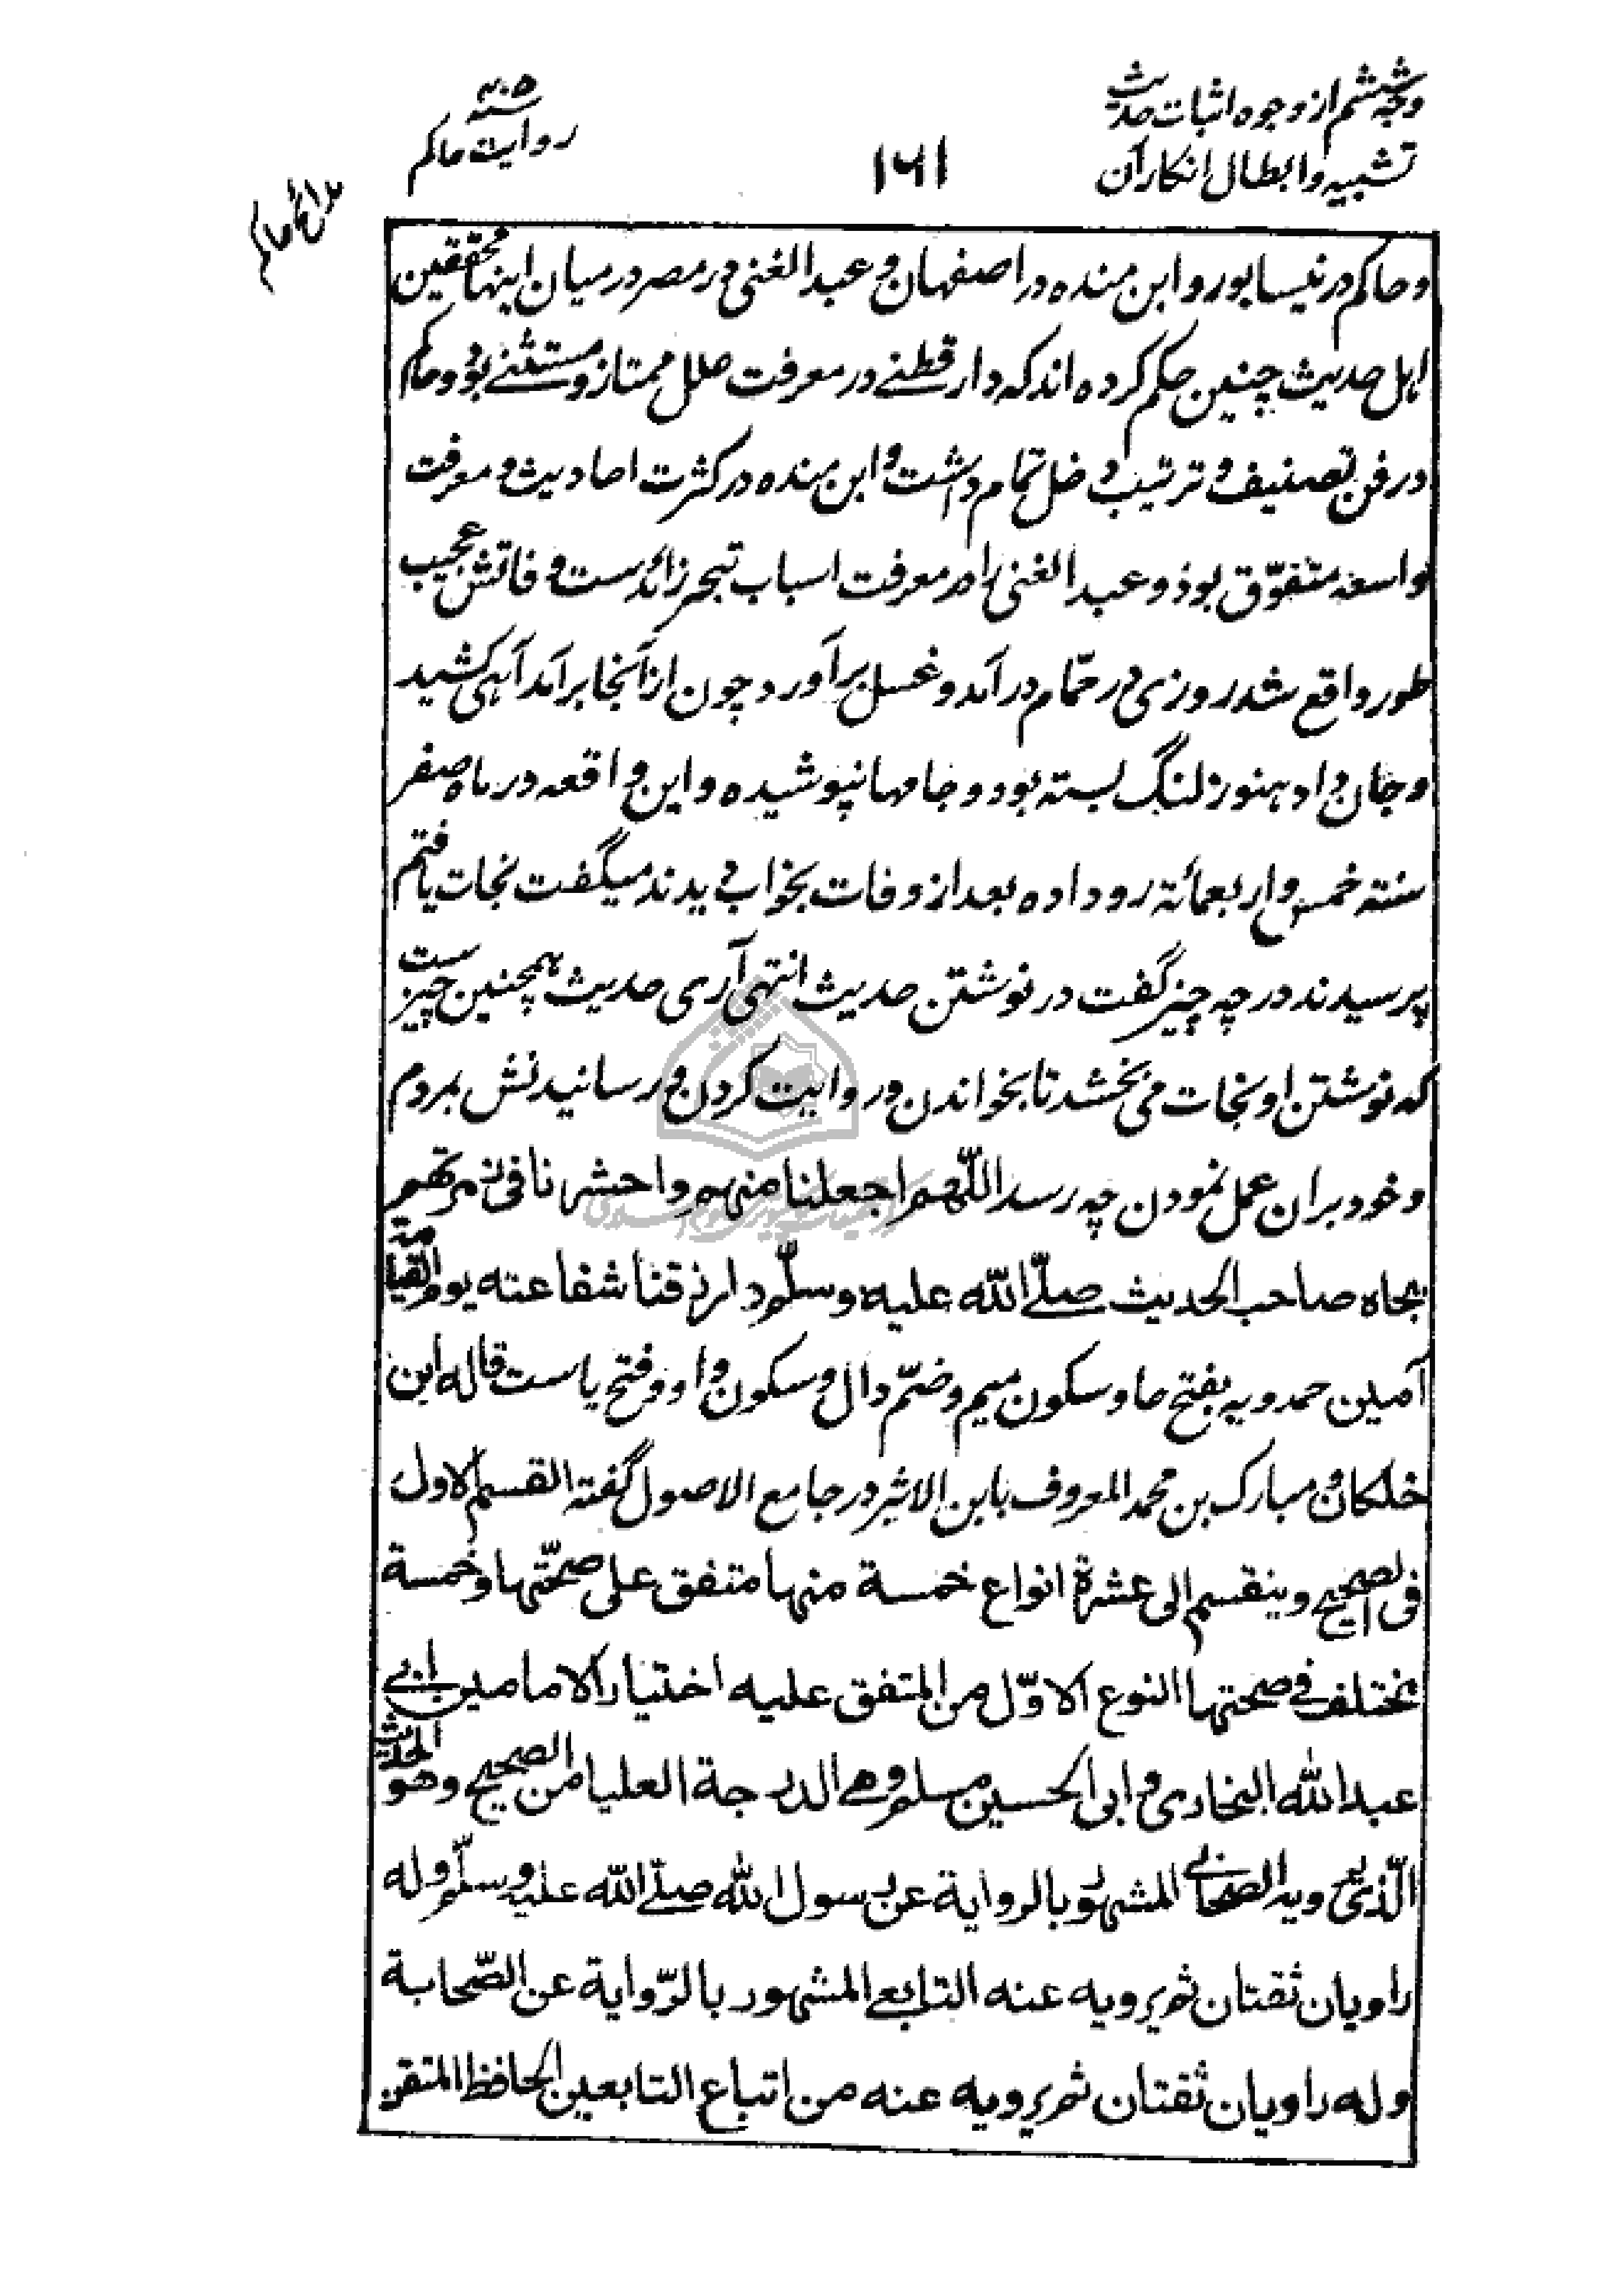 وجه ششم از وجوه اثبات حدیث
تشبیه و ابطال انکار آن
۱۶۱
۴۰۵ سنه
روایت حاکم
مدائح حاکم
و حاکم در نیسابور و ابن منده در اصفهان و عبد الغنی در مصر در میان اینها محققین
اهل حدیث چنین حکم کرده اند که دارقطنے در معرفت علل ممتاز و مستثنے بود و حاکم
در فن تصنیف و ترتیب دخل تمام داشت و ابن منده در کثرت احادیث و معرفت
واسعه متفوّق بود و عبد الغنی را در معرفت اسباب تبحر زائدست وفاتش عجیب
طور واقع شد روزی در حمّام در آمد و غسل بر آورد چون از آنجا بر آمد آهی کشید
و جان داد هنوز لنگ بسته بود و جامها نپوشیده و این واقعه در ماه صفر
سنته خمس و اربعمائة رو داده بعد از وفات بخواب دیدند میگفت نجات یافتم
پرسیدند در چه چیز گفت در نوشتن حدیث انتهی آری حدیث همچنین چیزیست
که نوشتن او نجات می بخشد تا بخواندن و روایت کردن و رسانیدنش بمردم
و خود بران عمل نمودن چه رسد اللّهم اجعلنا منهم واحشرنا فی زمرتهم
بجاه صاحب الحدیث صلّے اللّه علیه وسلّم وارزقنا شفاعته یوم القیامة
آمین حمدویه بفتح حا و سکون میم و ضمّ دال و سکون واو و فتح یاست قاله ابن
خلکان و مبارک بن محمد المعروف بابن الاثیر در جامع الاصول گفته القسم الاول
فی الصحیح وینقسم الی عشرة انواع خمسة منها متفق علی صحّتها وخمسة
مختلف فے صحتها النوع الاوّل من المتفق علیه اختیار الامامین ابے
عبد اللّه البخاری وابی الحسین مسلم وهے الدرجة العلیا من الصحیح وهو الحدیث
الّذی یرویه الصحابے المشهور بالروایة عن رسول اللّه صلّے اللّه علیه وسلّم وله
راویان ثقتان ثم یرویه عنه التابعے المشهور بالرّوایة عن الصّحابة
وله راویان ثقتان ثم یرویه عنه من اتباع التابعین الحافظ المتقن